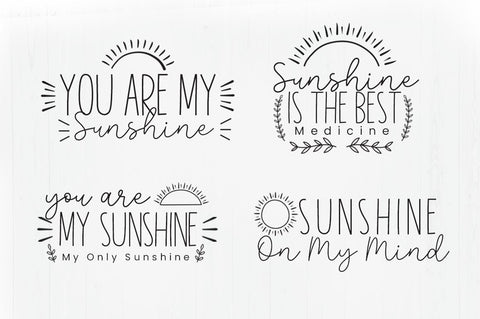 YOU ARE MY
Sunshine
Sunshine
IS THE BEST
Medicine
you are
MY SUNSHINE
My Only Sunshine
SUNSHINE
On My Mind